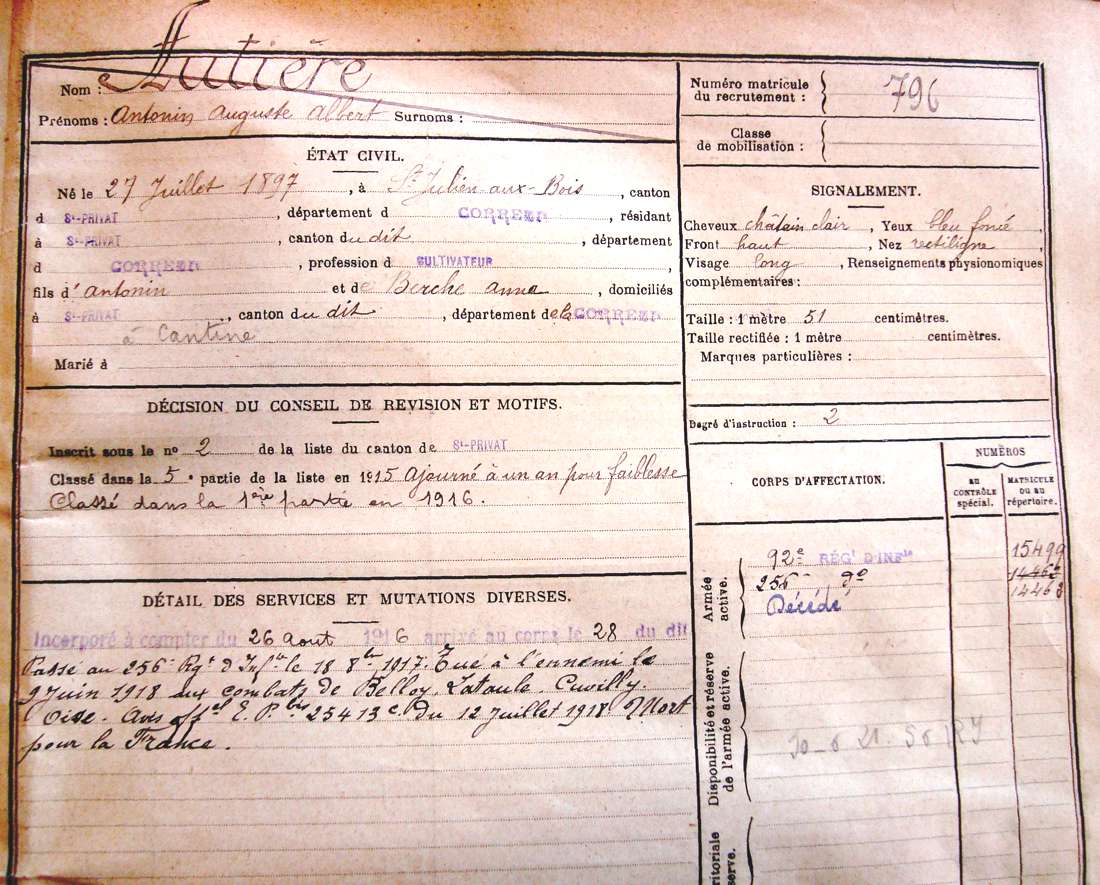 Nom : Autière
Prénoms : Antonin Auguste Albert Surnoms :
ÉTAT CIVIL.
Né le 27 Juillet 1897, à St Julien-aux-Bois, canton
d St-PRIVAT, département d CORREZE, résidant
à St-PRIVAT, canton du dit, département
d CORREZE, profession d CULTIVATEUR,
fils d'Antonin et de Berche Anna, domiciliés
à St-PRIVAT, canton du dit, département de la CORREZE
à Cantine
Marié à
DÉCISION DU CONSEIL DE REVISION ET MOTIFS.
Inscrit sous le no 2 de la liste du canton de St-PRIVAT
Classé dans la 5e partie de la liste en 1915 Ajourné à un an pour faiblesse
Classé dans la 1ère partie en 1916.
DÉTAIL DES SERVICES ET MUTATIONS DIVERSES.
Incorporé à compter du 26 Aout 1916 arrivé au corps le 28 du dit
Passé au 256e Rgt d'Infie le 18 8bre 1917. Tué à l'ennemi le
9 Juin 1918 aux combats de Belloy. Lataule. Cuvilly.
Oise. Avis du 12 Juillet 1918 Mort
pour la France.
Numéro matricule
du recrutement : 796
Classe
de mobilisation :
SIGNALEMENT.
Cheveux châtain clair, Yeux bleu foncé,
Front haut, Nez rectiligne,
Visage long, Renseignements physionomiques
complémentaires :
Taille : 1 mètre 51 centimètres.
Taille rectifiée : 1 mètre centimètres.
Marques particulières :
Degré d'instruction : 2
CORPS D'AFFECTATION.
NUMÉROS
AU CONTRÔLE spécial.
MATRICULE OU AU répertoire.
Armée active.
92e RÉGt D'INFie 15499
256e do 14462
Décédé 14463
Disponibilité et réserve de l'armée active.
ritoriale
serve.